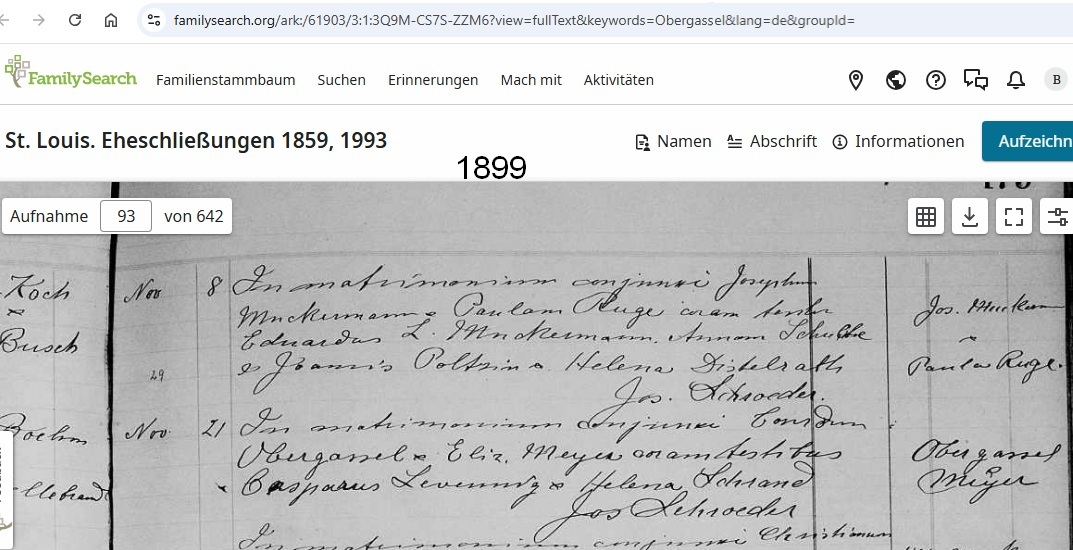 familysearch.org/ark:/61903/3:1:3Q9M-CS7S-ZZM6?view=fullText&keywords=Obergassel&lang=de&groupId=
FamilySearch
Familienstammbaum Suchen Erinnerungen Mach mit Aktivitäten B
St. Louis. Eheschließungen 1859, 1993
Namen Abschrift Informationen Aufzeichn
1899
Aufnahme 93 von 642
Koch
x
Busch
Nov 8 In matrimonium conjunxi Josephum
Muckermann & Paulam Ruge coram testibus
Eduardus L Muckermann. Annam Schulte
& Joannis Poltsin & Helena Distelrath
Jos. Schroeder.
Jos. Muckerm
x
Paula Ruge.
29
Boehm
Nov 21 In matrimonium conjunxi
Obergassel & Eliz. Meyer coram testibus
Casparus Levennig & Helena Schrand
Jos Schroeder
Obergassel
Meyer
In matrimonium conjunxi Christianum